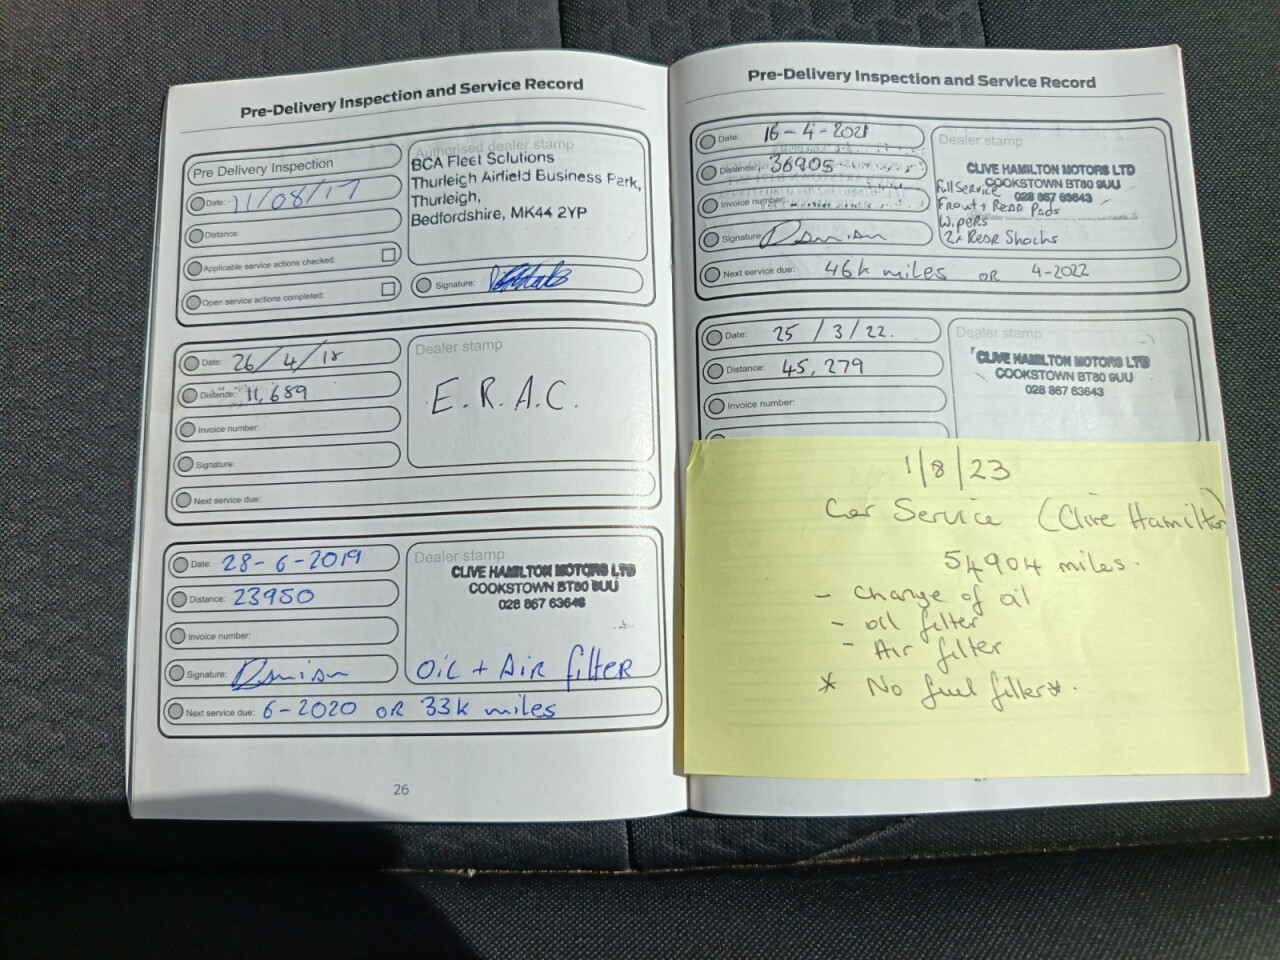 Pre-Delivery Inspection and Service Record
Pre Delivery Inspection
Date: 11/08/17
Distance:
Applicable service actions checked:
Open service actions completed:
Authorised dealer stamp
BCA Fleet Solutions
Thurleigh Airfield Business Park,
Thurleigh,
Bedfordshire, MK44 2YP
Signature:
Date: 26/4/18
Distance: 11,689
Invoice number:
Signature:
Next service due:
Dealer stamp
E.R.A.C.
Date: 28-6-2019
Distance: 23950
Invoice number:
Signature:
Next service due: 6-2020 OR 33k miles
Dealer stamp
CLIVE HAMILTON MOTORS LTD
COOKSTOWN BT80 9UU
028 867 63643
Oil + Air filter
26
Pre-Delivery Inspection and Service Record
Date: 16-4-2021
Distance: 36905
Invoice number:
Signature:
Next service due: 46k miles OR 4-2022
Dealer stamp
CLIVE HAMILTON MOTORS LTD
COOKSTOWN BT80 9UU
028 867 63643
Full Service
Front + Rear Pads
Wipers
2x Rear Shocks
Date: 25/3/22.
Distance: 45,279
Invoice number:
Dealer stamp
CLIVE HAMILTON MOTORS LTD
COOKSTOWN BT80 9UU
028 867 63643
1/8/23
Car Service (Clive Hamilton)
54904 miles.
- Change of oil
- oil filter
- Air filter
* No fuel filter*.